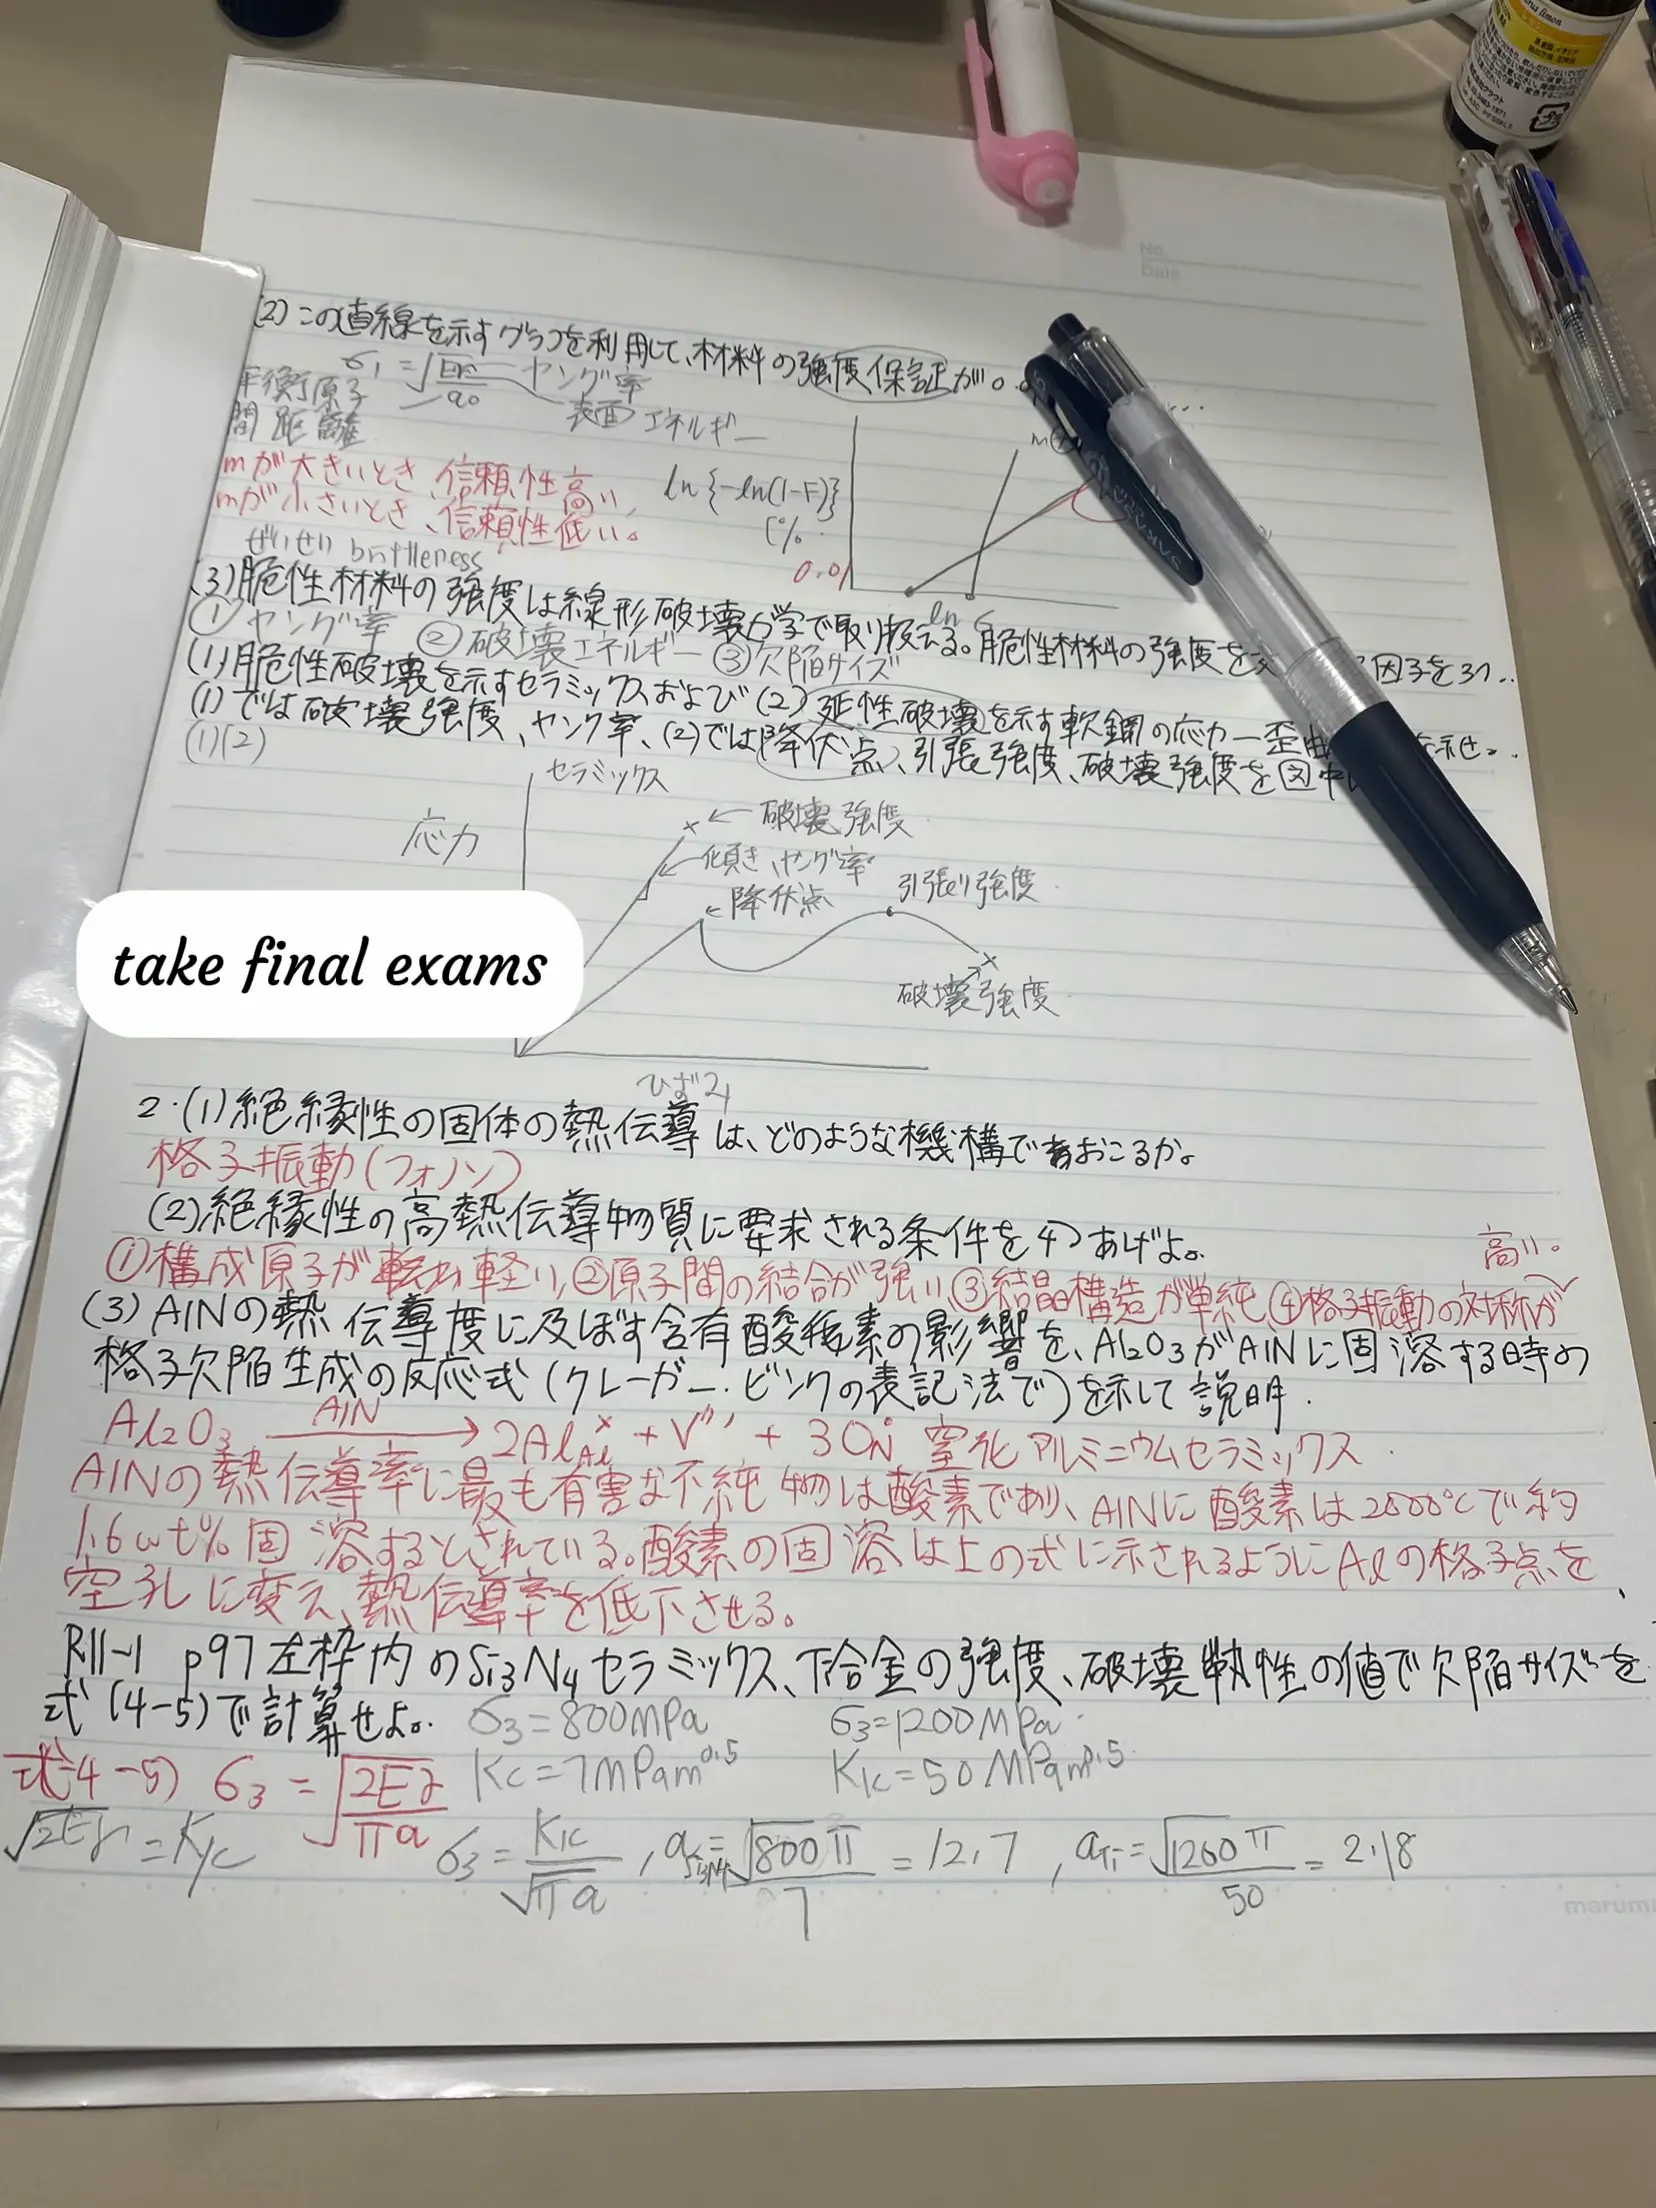 No.
Date
(2)この直線を示すグラフを利用して、材料の強度保証が
σ₁=√Eγ/a₀ ヤング率
平衡原子
間距離
表面エネルギー
mが大きいとき、信頼性高い、
mが小さいとき、信頼性低い。
ln{-ln(1-F)}
(%
0.01
ln σ
m
ぜいせい brittleness
(3)脆性材料の強度は線形破壊力学で取り扱える。脆性材料の強度を 因子を3つ..
①ヤング率 ②破壊エネルギー ③欠陥サイズ
(1)脆性破壊を示すセラミックスおよび(2)延性破壊を示す軟鋼の応力ー歪 を示せ。
(1)では破壊強度、ヤング率、(2)では降伏点、引張強度、破壊強度を図中
(1)(2)
セラミックス
応力
←破壊強度
←傾き、ヤング率
←降伏点
引張り強度
破壊強度
take final exams
ひずみ
2.(1)絶縁性の固体の熱伝導は、どのような機構でおこるか。
格子振動(フォノン)
(2)絶縁性の高熱伝導物質に要求される条件を4つあげよ。
高い。
①構成原子が軽い、②原子間の結合が強い、③結晶構造が単純、④格子振動の対称が
(3)AlNの熱伝導度に及ぼす含有酸素の影響を、Al₂O₃がAlNに固溶する時の
格子欠陥生成の反応式(クレーガー・ビンクの表記法で)を示して説明.
Al₂O₃ AlN→ 2AlAlˣ + V''' + 3ON˙ 窒化アルミニウムセラミックス.
AlNの熱伝導率に最も有害な不純物は酸素であり、AlNに酸素は2000℃で約
1.6wt%固溶するとされている。酸素の固溶は上の式に示されるようにAlの格子点を
空孔に変え、熱伝導率を低下させる。
R11-1 p97左枠内のSi₃N₄セラミックス、Ti合金の強度、破壊靭性の値で欠陥サイズを
式(4-5)で計算せよ。 σ₃=800MPa σ₃=1200MPa
式(4-5) σ₃=√2Eγ/πa Kc=7MPam⁰·⁵ K1c=50MPam⁰·⁵
√2Eγ=K1c σ₃=K1c/√πa , aSi₃N₄=√800π/7=12.7 , aTi=√1200π/50=2.18